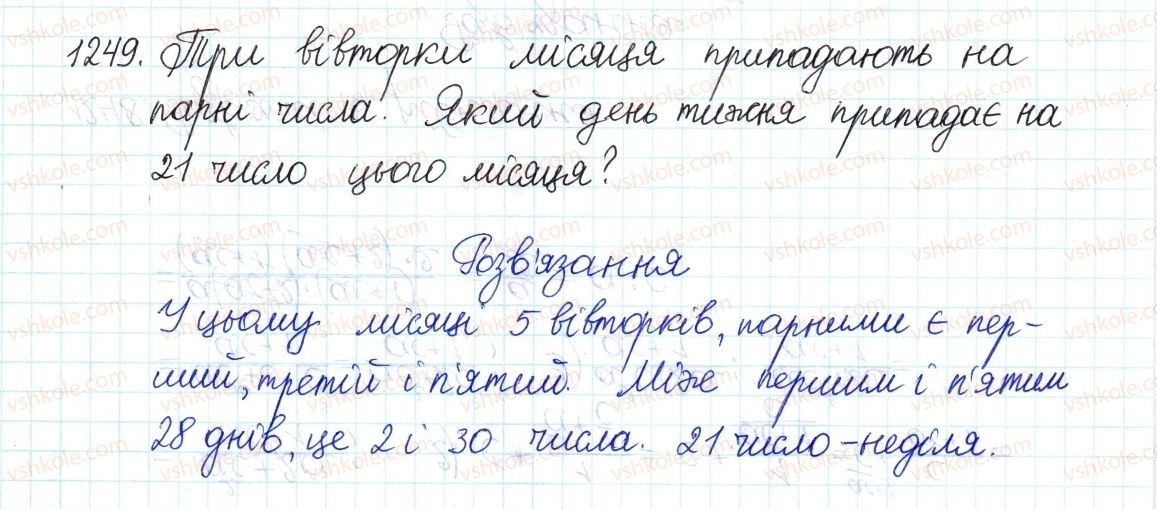 1249. Три вівторки місяця припадають на
парні числа. Який день тижня припадає на
21 число цього місяця?
Розв'язання
У цьому місяці 5 вівторків, парними є пер-
ший, третій і п'ятий. Між першим і п'ятим
28 днів, це 2 і 30 числа. 21 число - неділя.